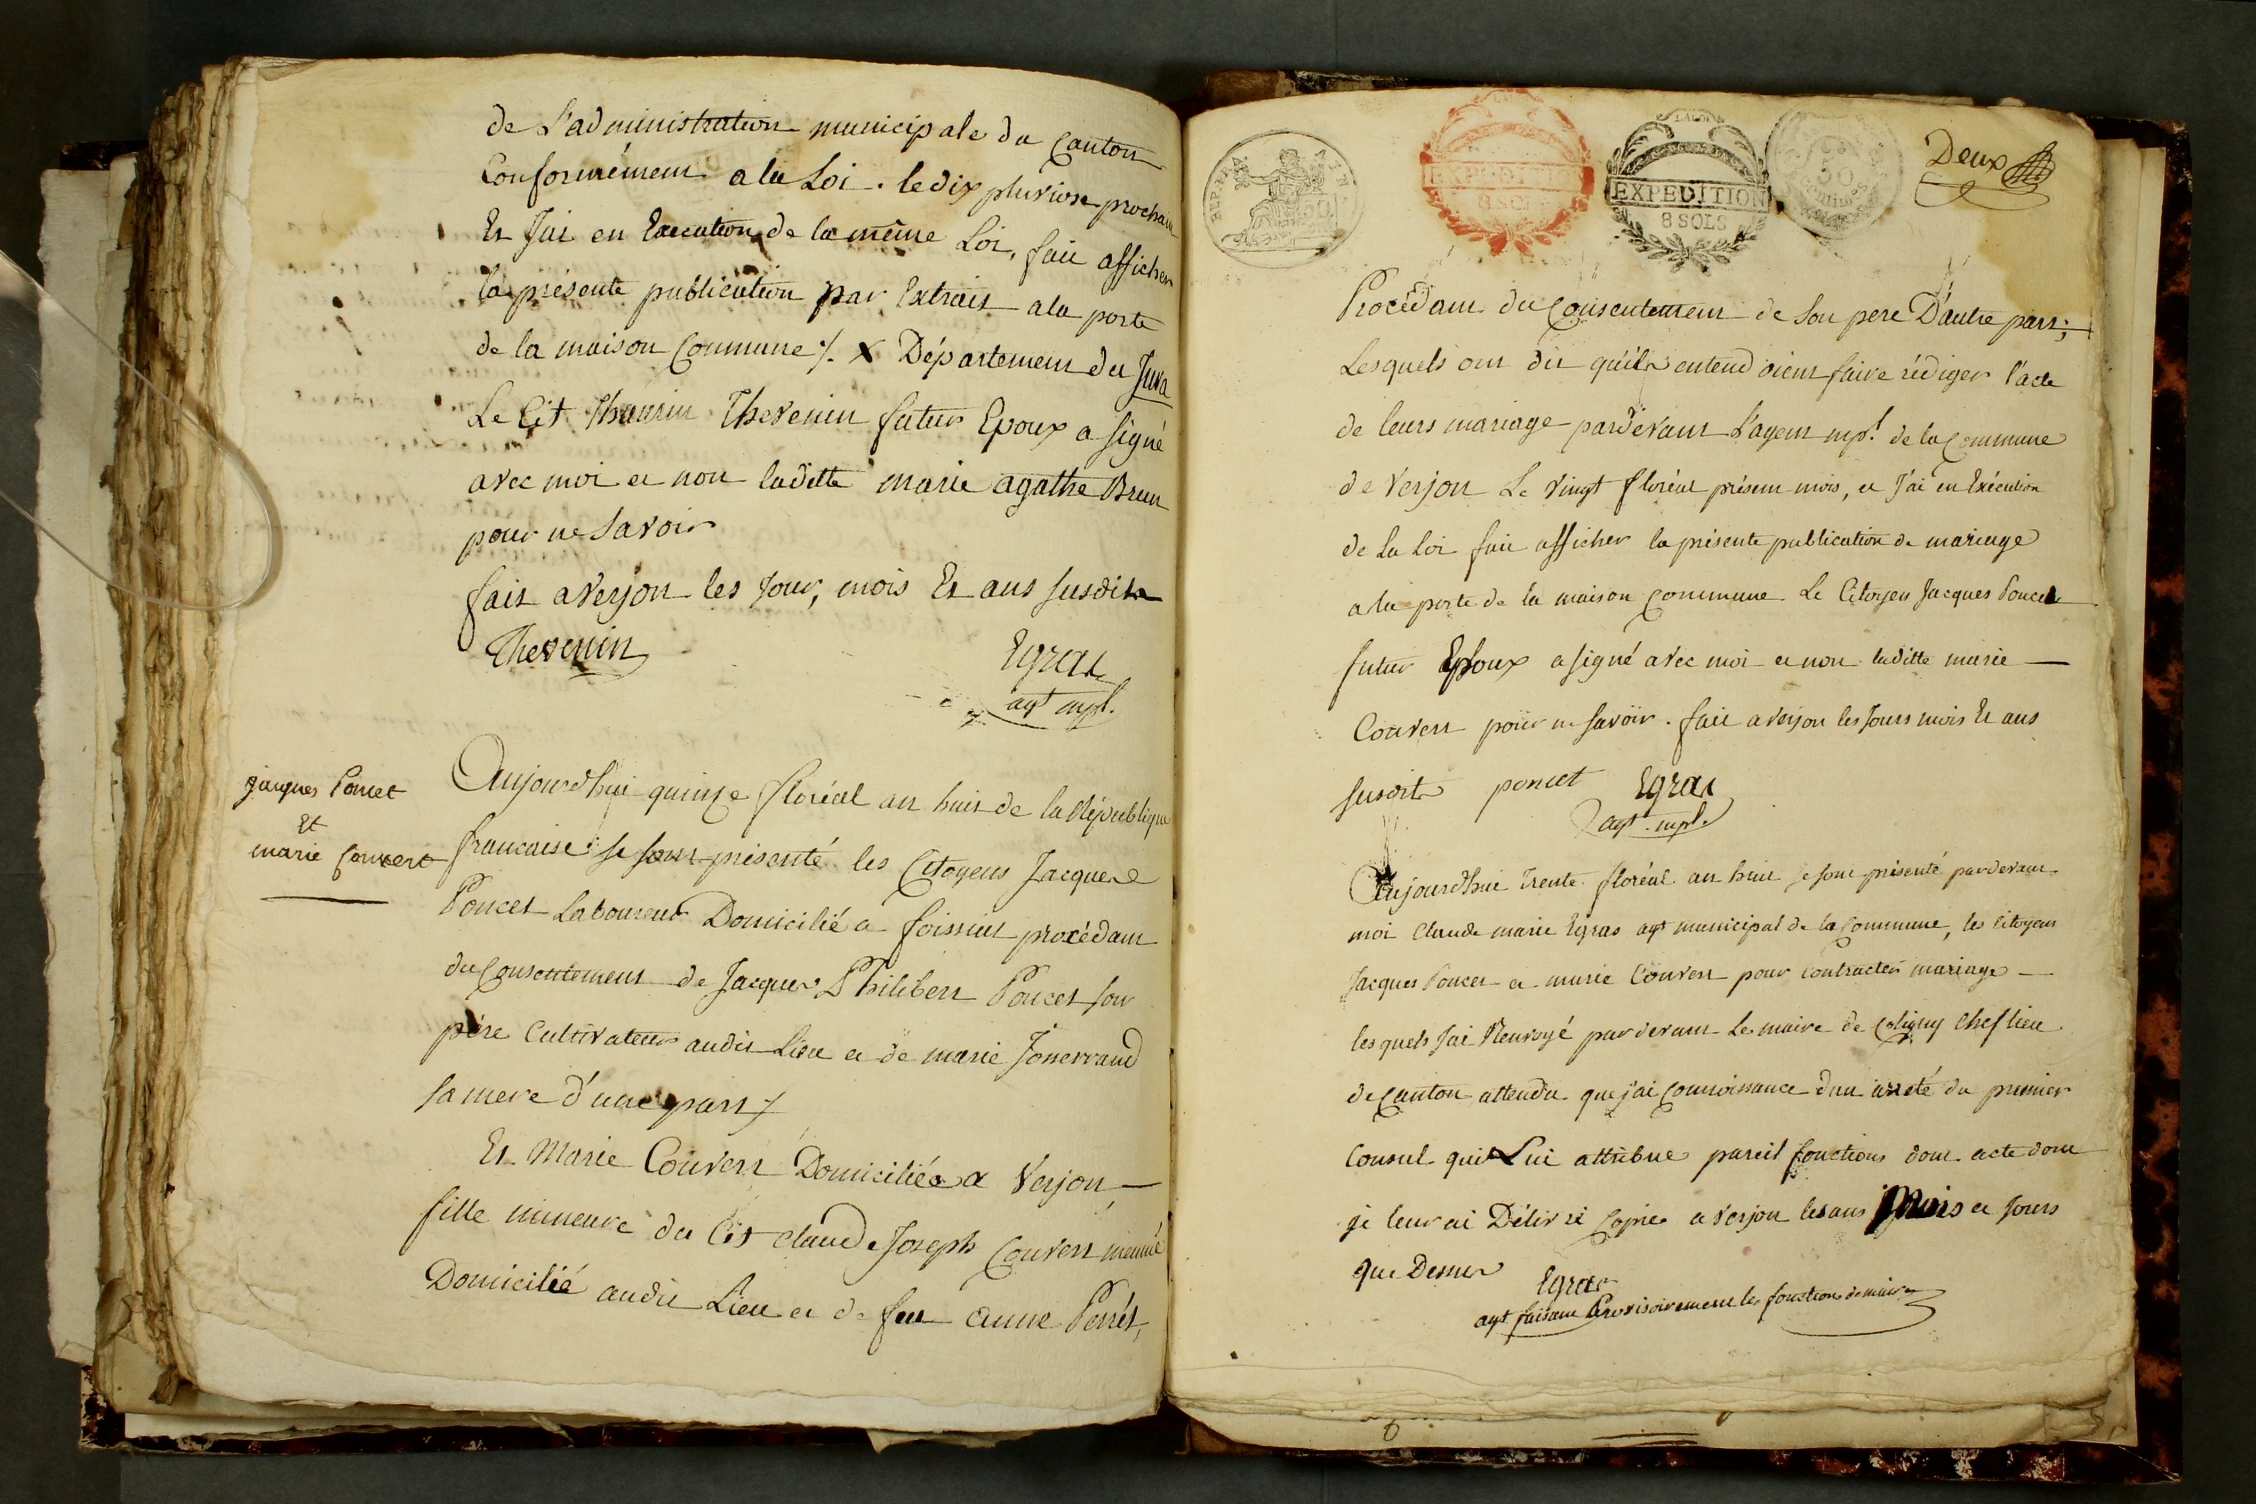 de L'administration municipale du Canton
Conformément a la Loi. le dix pluviose prochain
Et J'ai en Execution de la même Loi, fait afficher
la présente publication par Extrait a la porte
de la maison Commune /. X Département du Jura
Le Cit Thevenin futur Epoux a signé
avec moi et non laditte marie agathe Brun
pour ne Savoir
fait a Verjon les Jour, mois Et ans susdits
Thevenin Egras
agt mpl.
jacques Poncet
Et
marie Convert
Aujourd'hui quinze floréal an huit de la République
francaise se sont présenté les Citoyens Jacques
Poncet Laboureur Domicilié a foissiat procédant
du Consentement de Jacques Philibert Poncet son
père Cultivateur audit Lieu et de marie Josserand
sa mere d'une part /
Et Marie Convert Domiciliée a Verjon
fille mineure du Cit claude Joseph Convert
Domicilié audit Lieu et de feu anne Perrét,
REP. FRA.
50
EXPEDITION
8 SOLS
LA LOI
EXPEDITION
8 SOLS
50
Deux
Procédant du Consentement de son pere D'autre part;
Lesquels ont dit qu'ils entendoient faire rédiger l'acte
de leurs mariage pardevant L'agent mpl de la Commune
de Verjon Le Vingt floréal présent mois, et J'ai en Exécution
de La Loi fait afficher la présente publication de mariage
a la porte de la maison Commune Le Citoyen Jacques Poncet
futur Epoux a signé avec moi et non laditte marie
Convert pour ne savoir. fait a Verjon les Jours mois Et ans
susdits poncet Egras
agt. mpl.
Aujourd'hui trente floréal an huit se sont présenté pardevant
moi Claude marie Egras agt municipal de la Commune, les Citoyens
Jacques Poncet et marie Convert pour Contracter mariage
lesquels J'ai Renvoyé pardevant Le maire de Coligny Chef lieu
de Canton attendu que j'ai Connoissance d'un arreté du premier
Consul qui Lui attribue pareil fonctions dont acte dont
je leur ai Délivré Copie a Verjon les ans mois et Jours
que Dessus Egras
agt faisant Provisoirement les fonctions de maire